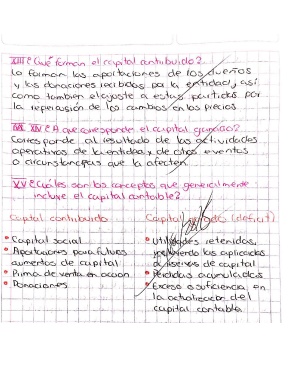 XIII ¿Qué forman el capital contribuido?
Lo forman las aportaciones de los dueños
y las donaciones recibidas por la entidad, así
como también el ajuste a estas partidas por
la repercusión de los cambios en los precios
XIV ¿A que corresponde el capital ganado?
Corresponde al resultado de las actividades
operativas de la entidad y de otros eventos
o circunstancias que la afecten.
XV ¿Cuáles son los conceptos que generalmente
incluye el capital contable?
Capital contribuido
Capital (deficit)
• Capital social
• Aportaciones para futuros
aumentos de capital
• Prima de venta en accion
• Donaciones
• Utilidades retenidas,
las aplicadas
a reservas de capital
• Perdidas acumuladas
• Exceso o suficiencia en
la actualización del
capital contable.